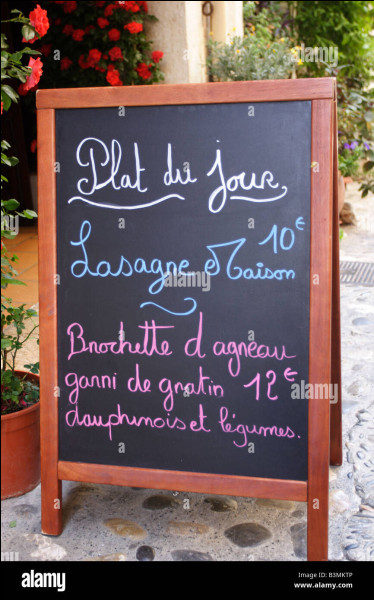 Plat du jour
10€
Lasagne Maison
Brochette d agneau
garni de gratin 12€
dauphinois et légumes.
alamy stock photo
alamy
www.alamy.com
Image ID: B3MKTP